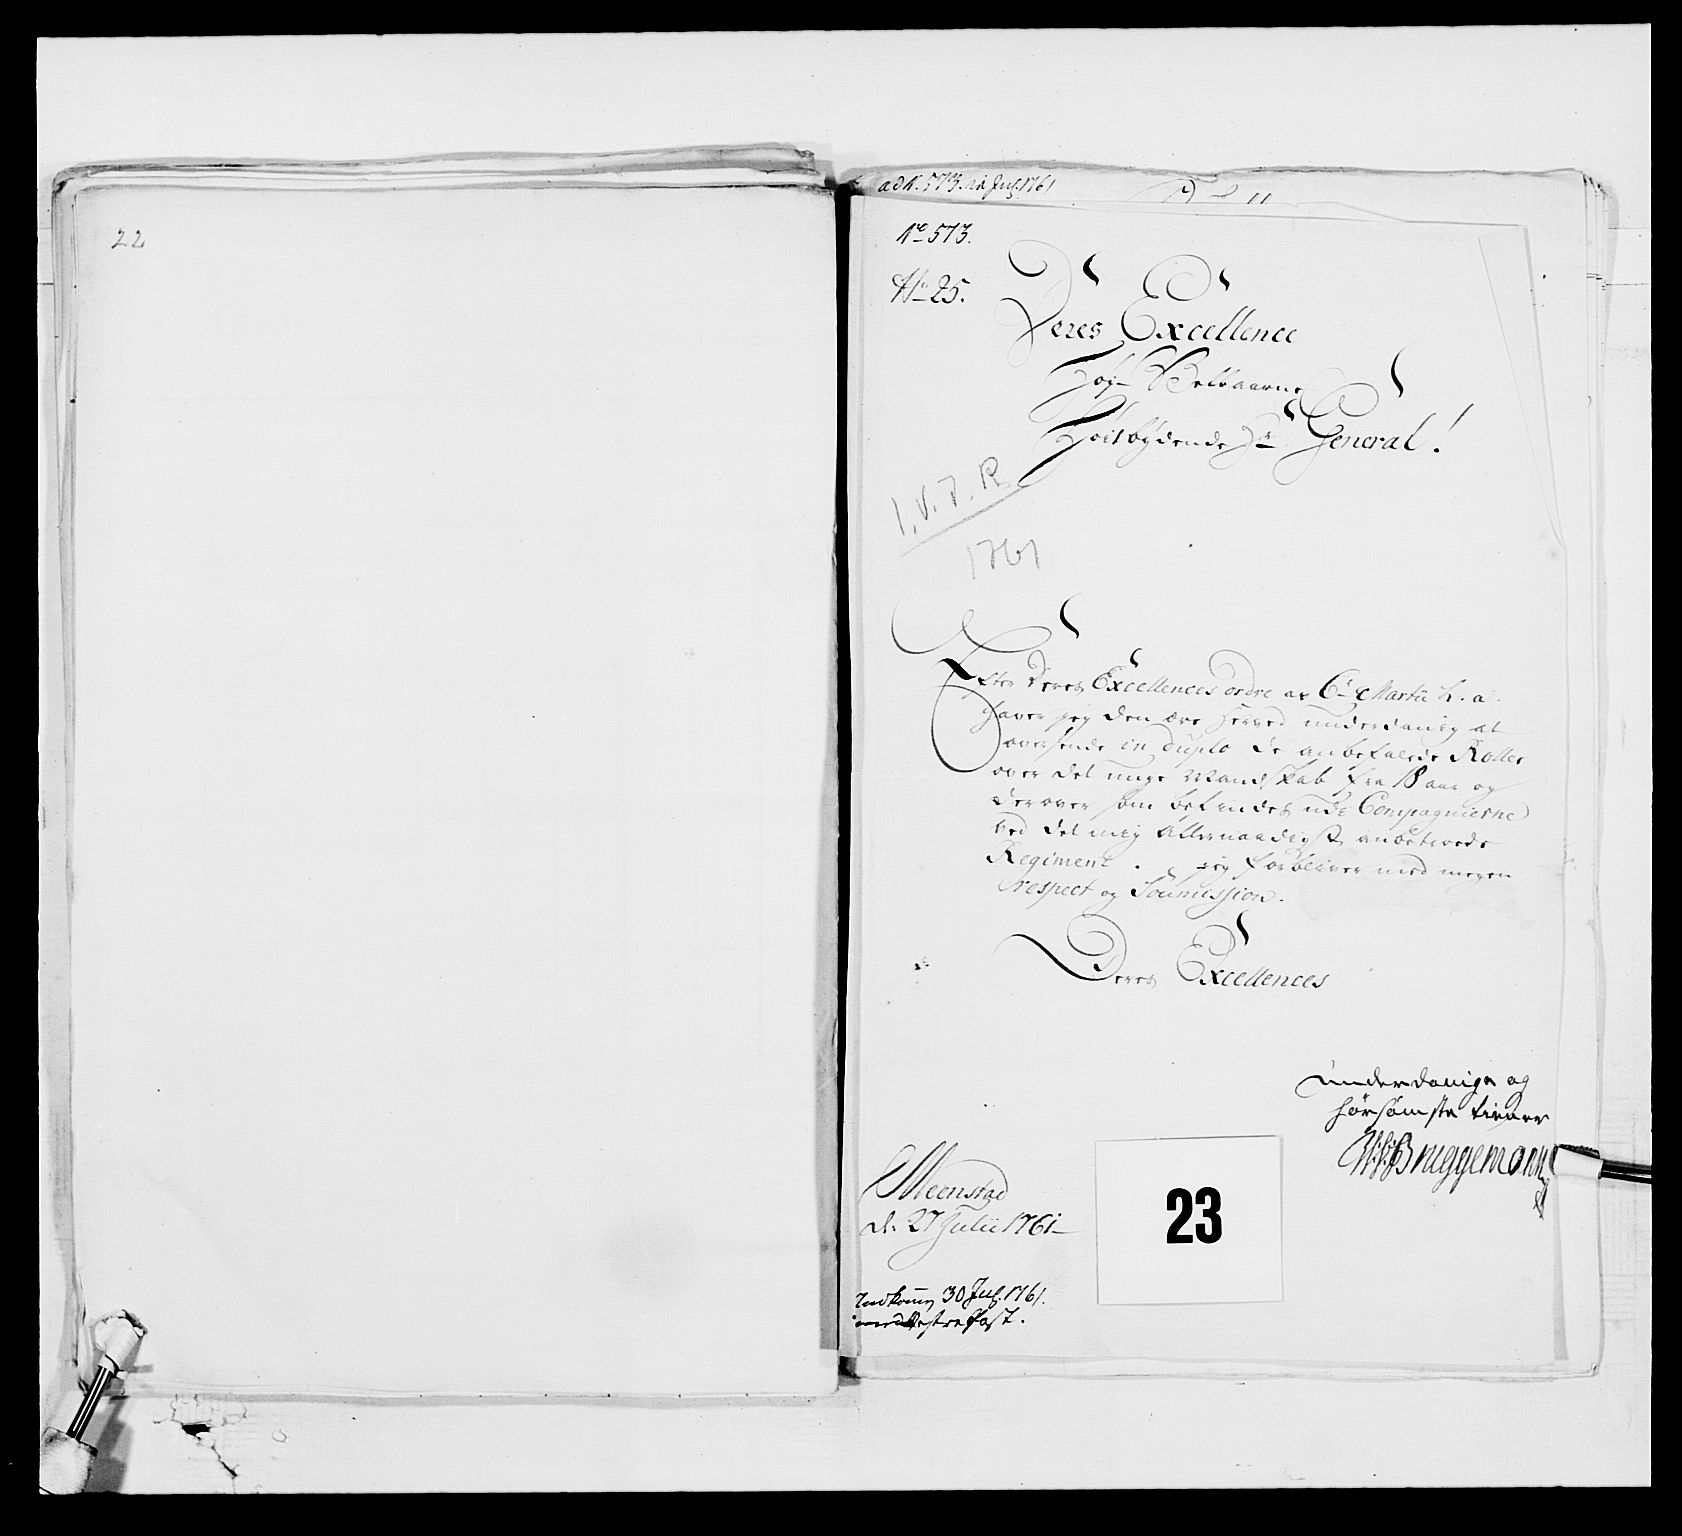 22
ad N. 573. in Jul. 1761
No 573.
No 25.
Deres Excellence
Høy-Velbaarne
Høistbydende Hr General!
1. V. J. R
1761
Efter Deres Excellences ordre af 6te Martii h. a.
haver jeg den ære herved underdanig at
oversende in duplo de anbefalede Roller
over det unge Mandskab fra 18 aar og
derover som befindes ude Compagnierne
ved det mig Allernaadigst anbetroede
Regiment. jeg forbliver med megen
respect og Soumission.
Deres Excellences
underdanige og
hørsomste tiener
Bruggemann
Meenstad
d. 27 Julii 1761
Indkom 30 Jul. 1761.
med Vestre Post.
23